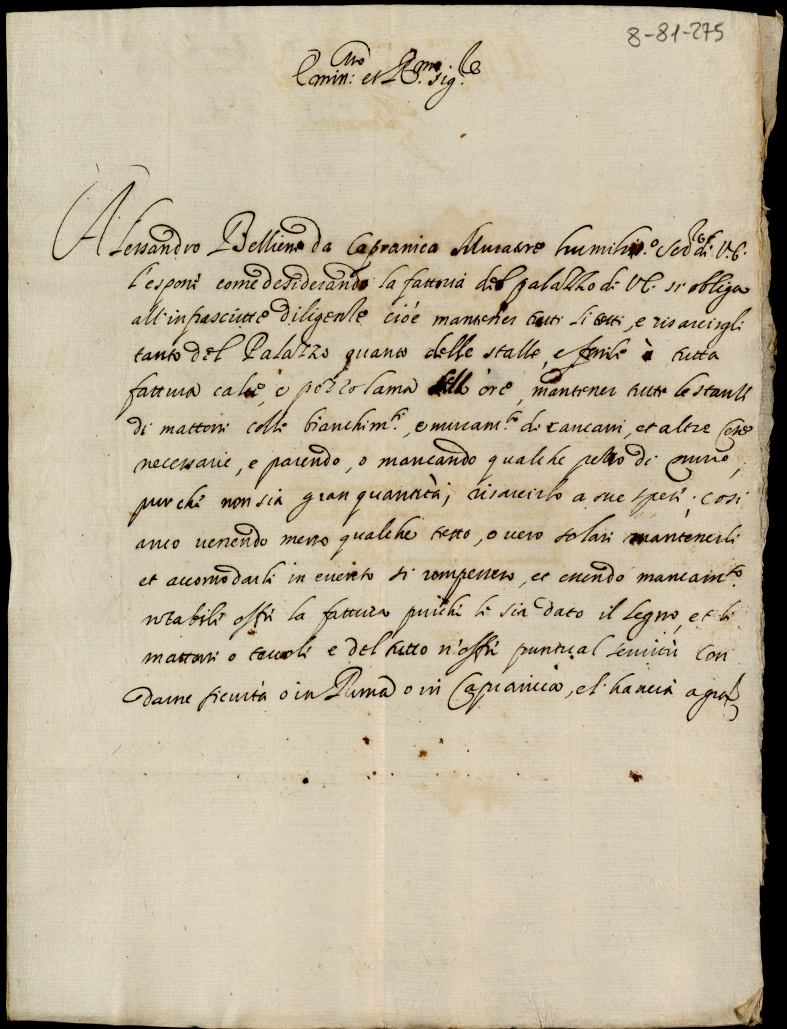 8-81-275
Emin: mo et R.mo sig.re
Alessandro Belliene da Capranica Muratore humiliss.o Ser.re di V.E.
l'espone come desiderando la fattoria del palazzo di VE. si obliga
all'infrascritte diligenze cioè mantener tutti li tetti, e risarcirgli
tanto del Palazzo quanto delle stalle, e fenile à tutta
fattura calce, e pozzolama ore, mantener tutte le stanze
di mattoni colle bianchim.ti, e muram.ti di cancani, et altre cose
necessarie, e parendo, o mancando qualche pezzo di muro,
purche non sia gran quantità, risarcirlo a sue spese. Cosi
anco venendo meno qualche tetto, o vero solari mantenerli
et accomodarli in evento si rompessero, et essendo mancam.to
notabile offre la fattura purche li sia dato il legno, et li
mattoni o tevole e del tutto n'offre puntual servitù con
darne sicurtà o in Roma o in Capranica, et l'haverà a gra